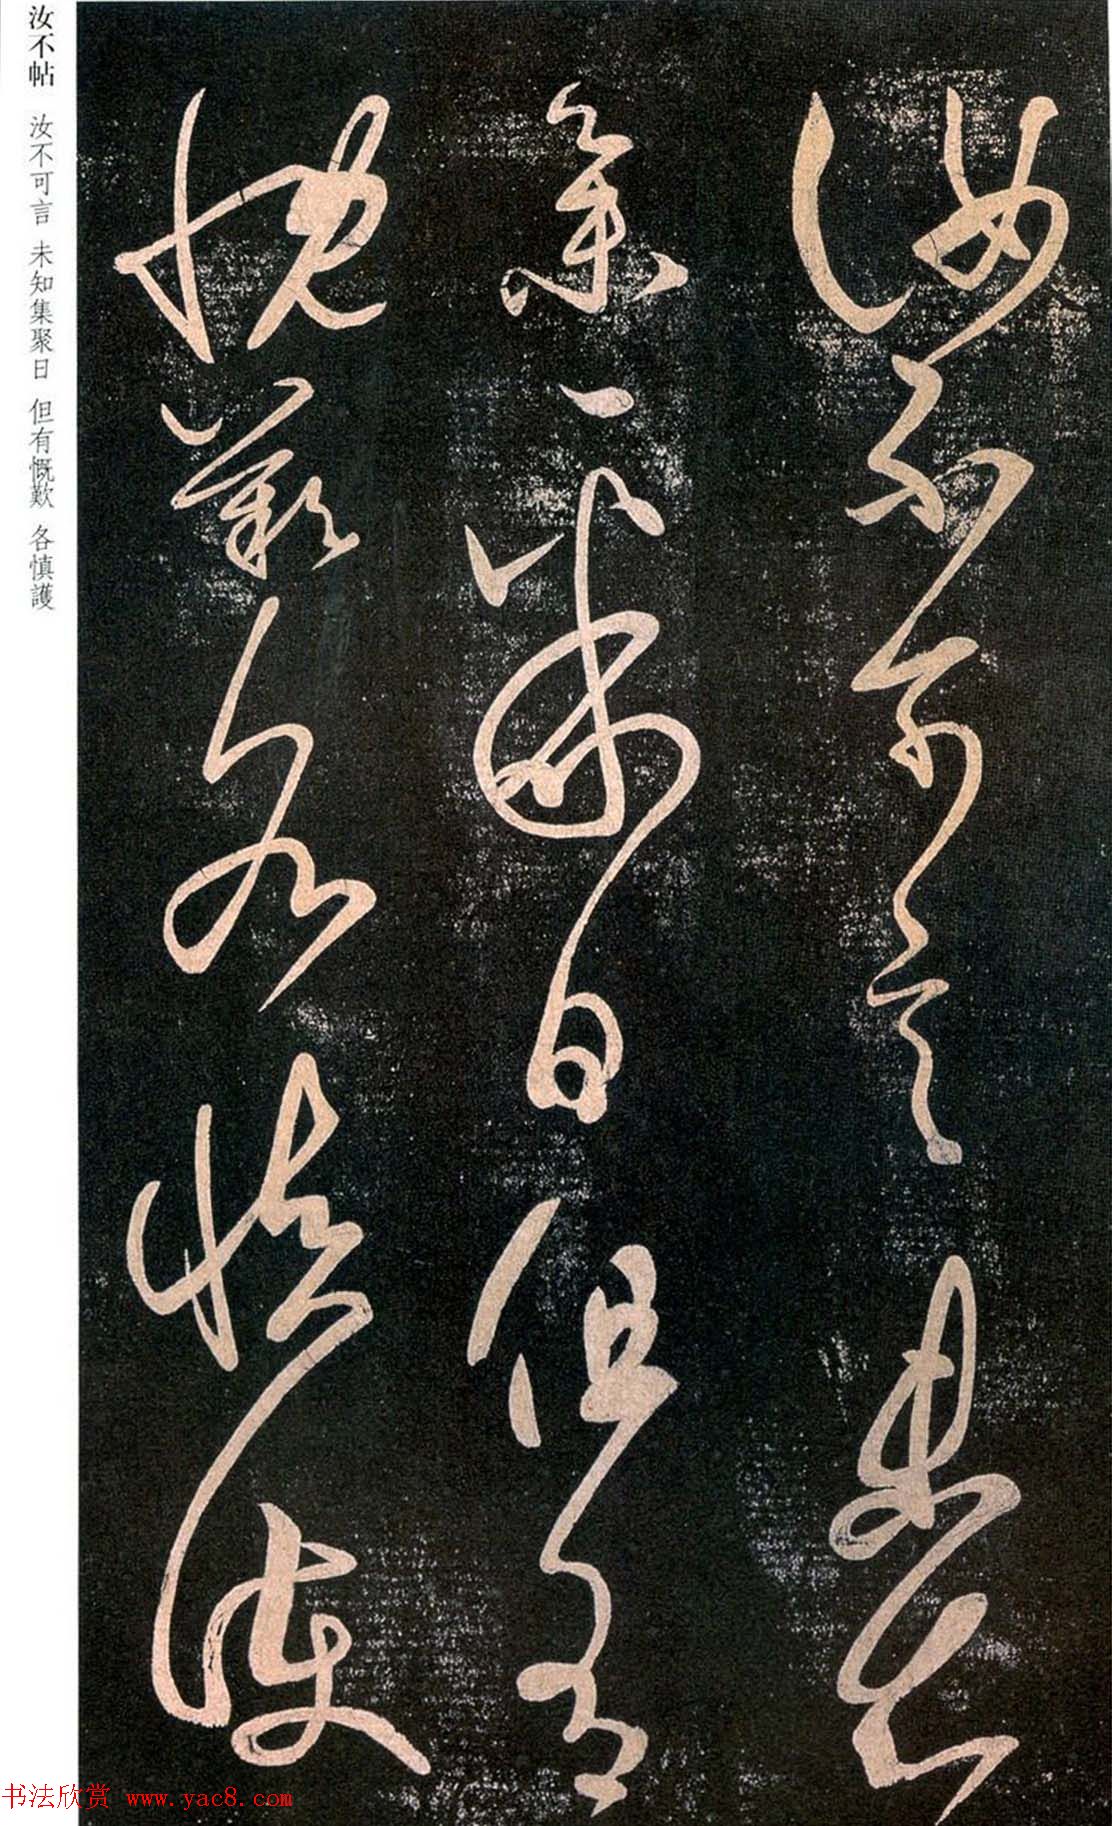 汝不可言未知
集聚日但有
慨歎各慎護
汝不帖 汝不可言 未知集聚日 但有慨歎 各慎護
书法欣赏 www.yac8.com